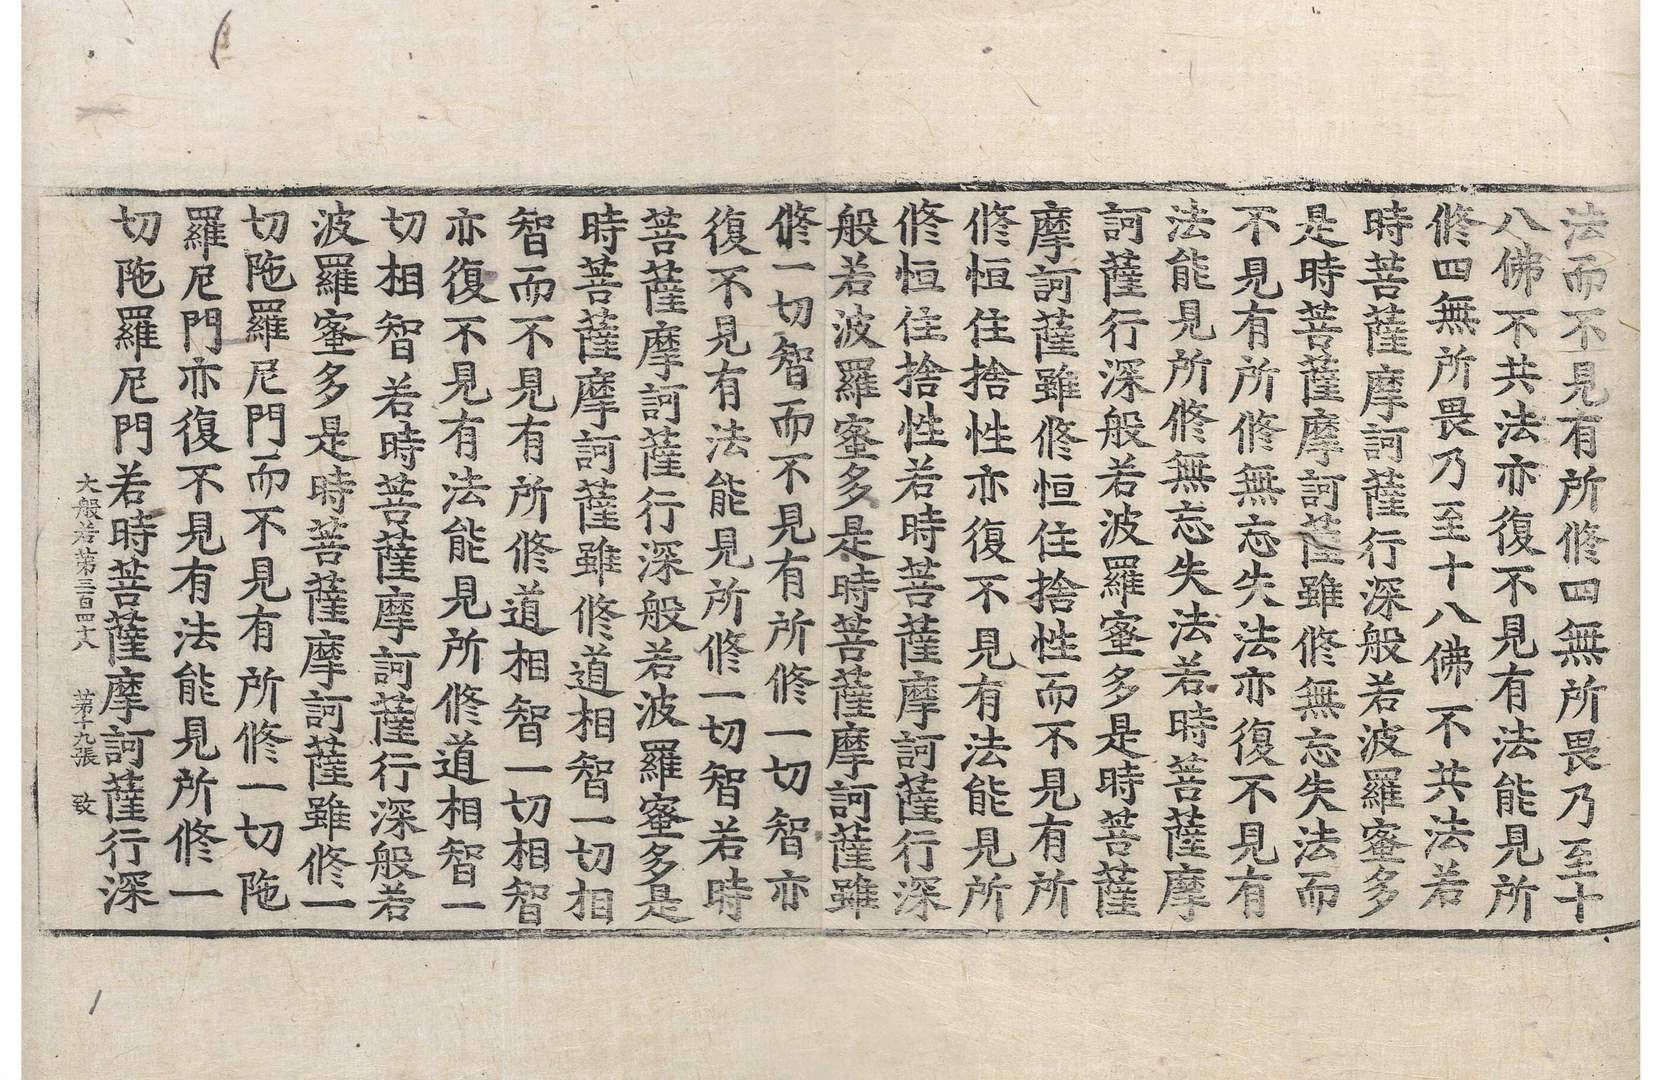 法而不見有所修四無所畏乃至十
八佛不共法亦復不見有法能見所
修四無所畏乃至十八佛不共法若
時菩薩摩訶薩行深般若波羅蜜多
是時菩薩摩訶薩雖修無忘失法而
不見有所修無忘失法亦復不見有
法能見所修無忘失法若時菩薩摩
訶薩行深般若波羅蜜多是時菩薩
摩訶薩雖修恒住捨性而不見有所
修恒住捨性亦復不見有法能見所
修恒住捨性若時菩薩摩訶薩行深
般若波羅蜜多是時菩薩摩訶薩雖
修一切智而不見有所修一切智亦
復不見有法能見所修一切智若時
菩薩摩訶薩行深般若波羅蜜多是
時菩薩摩訶薩雖修道相智一切相
智而不見有所修道相智一切相智
亦復不見有法能見所修道相智一
切相智若時菩薩摩訶薩行深般若
波羅蜜多是時菩薩摩訶薩雖修一
切陁羅尼門而不見有所修一切陁
羅尼門亦復不見有法能見所修一
切陁羅尼門若時菩薩摩訶薩行深
大般若第三百四十六 第十九張 致